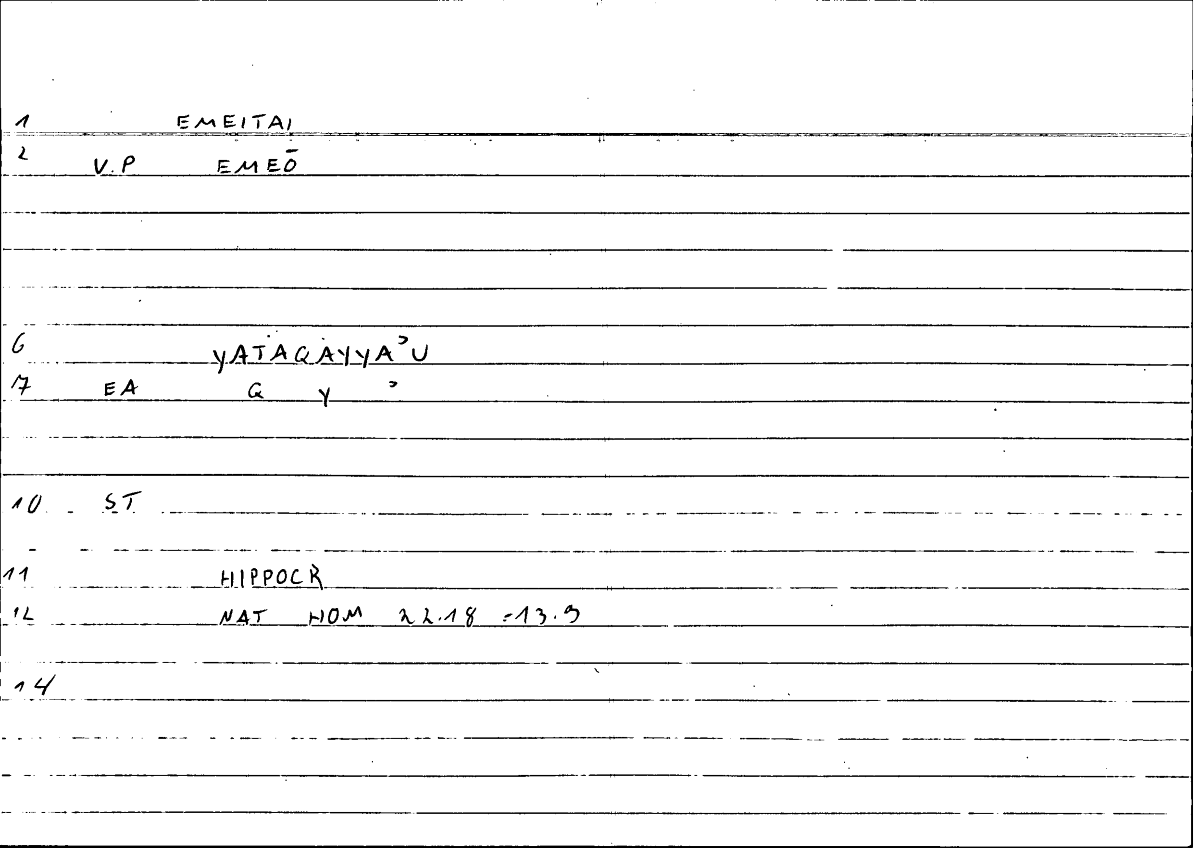 1 EMEITAI
2 V.P EMEŌ
6 YATAQAYYAʾU
7 EA Q Y ʾ
10 ST
11 HIPPOCR
12 NAT HOM 22.18 =13.9
14